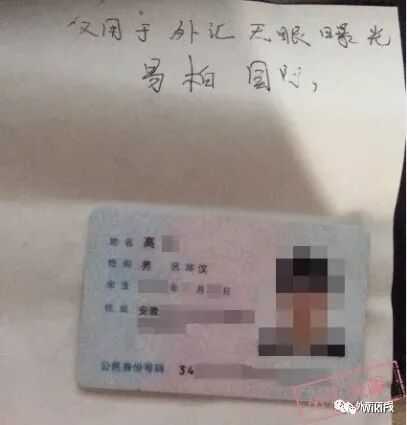 仅用于外汇天眼曝光
易柏国际,
姓名 高
性别 男 民族 汉
出生 年 月 日
住址 安徽
公民身份号码 34